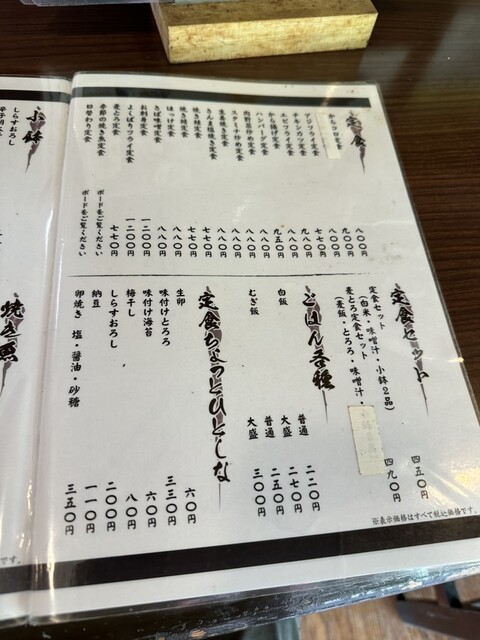 定食
アジフライ定食 九〇〇円
チキンカツ定食 八〇〇円
エビフライ定食 七七〇円
から揚げ定食 八八〇円
ハンバーグ定食 八八〇円
肉野菜炒め定食 九五〇円
スタミナ炒め定食 八八〇円
生姜焼き定食 八八〇円
さんま塩焼き定食 八八〇円
ほっけ定食 八八〇円
さば味噌定食 八八〇円
お刺身定食 一二〇〇円
よくばりフライ定食 一二〇〇円
麦とろ定食 七七〇円
季節の焼き魚定食 ボードをご覧ください
日替わり定食 ボードをご覧ください
定食セット
定食セット 四五〇円
(白米・味噌汁・小鉢2品)
麦とろ定食セット 四九〇円
(麦飯・とろろ・味噌汁・
ごはん各種
白飯 普通 二二〇円
大盛 二七〇円
むぎ飯 普通 二五〇円
大盛 三〇〇円
定食ちょっとひとしな
生卵 六〇円
味付けとろろ 三三〇円
味付け海苔 六〇円
梅干し 八〇円
しらすおろし 二〇〇円
納豆 一一〇円
卵焼き 塩・醤油・砂糖 三五〇円
※表示価格はすべて税込価格です。
小鉢
しらすおろし
焼き魚
です。